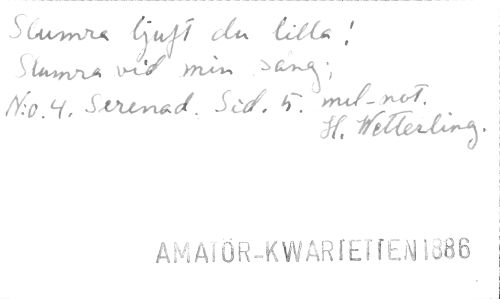 Slumra ljuft du lilla!
Slumra vid min sång;
N:o. 4. Serenad. Sid. 5. mel-not.
H. Wetterling.
AMATÖR-KWARTETTEN 1886